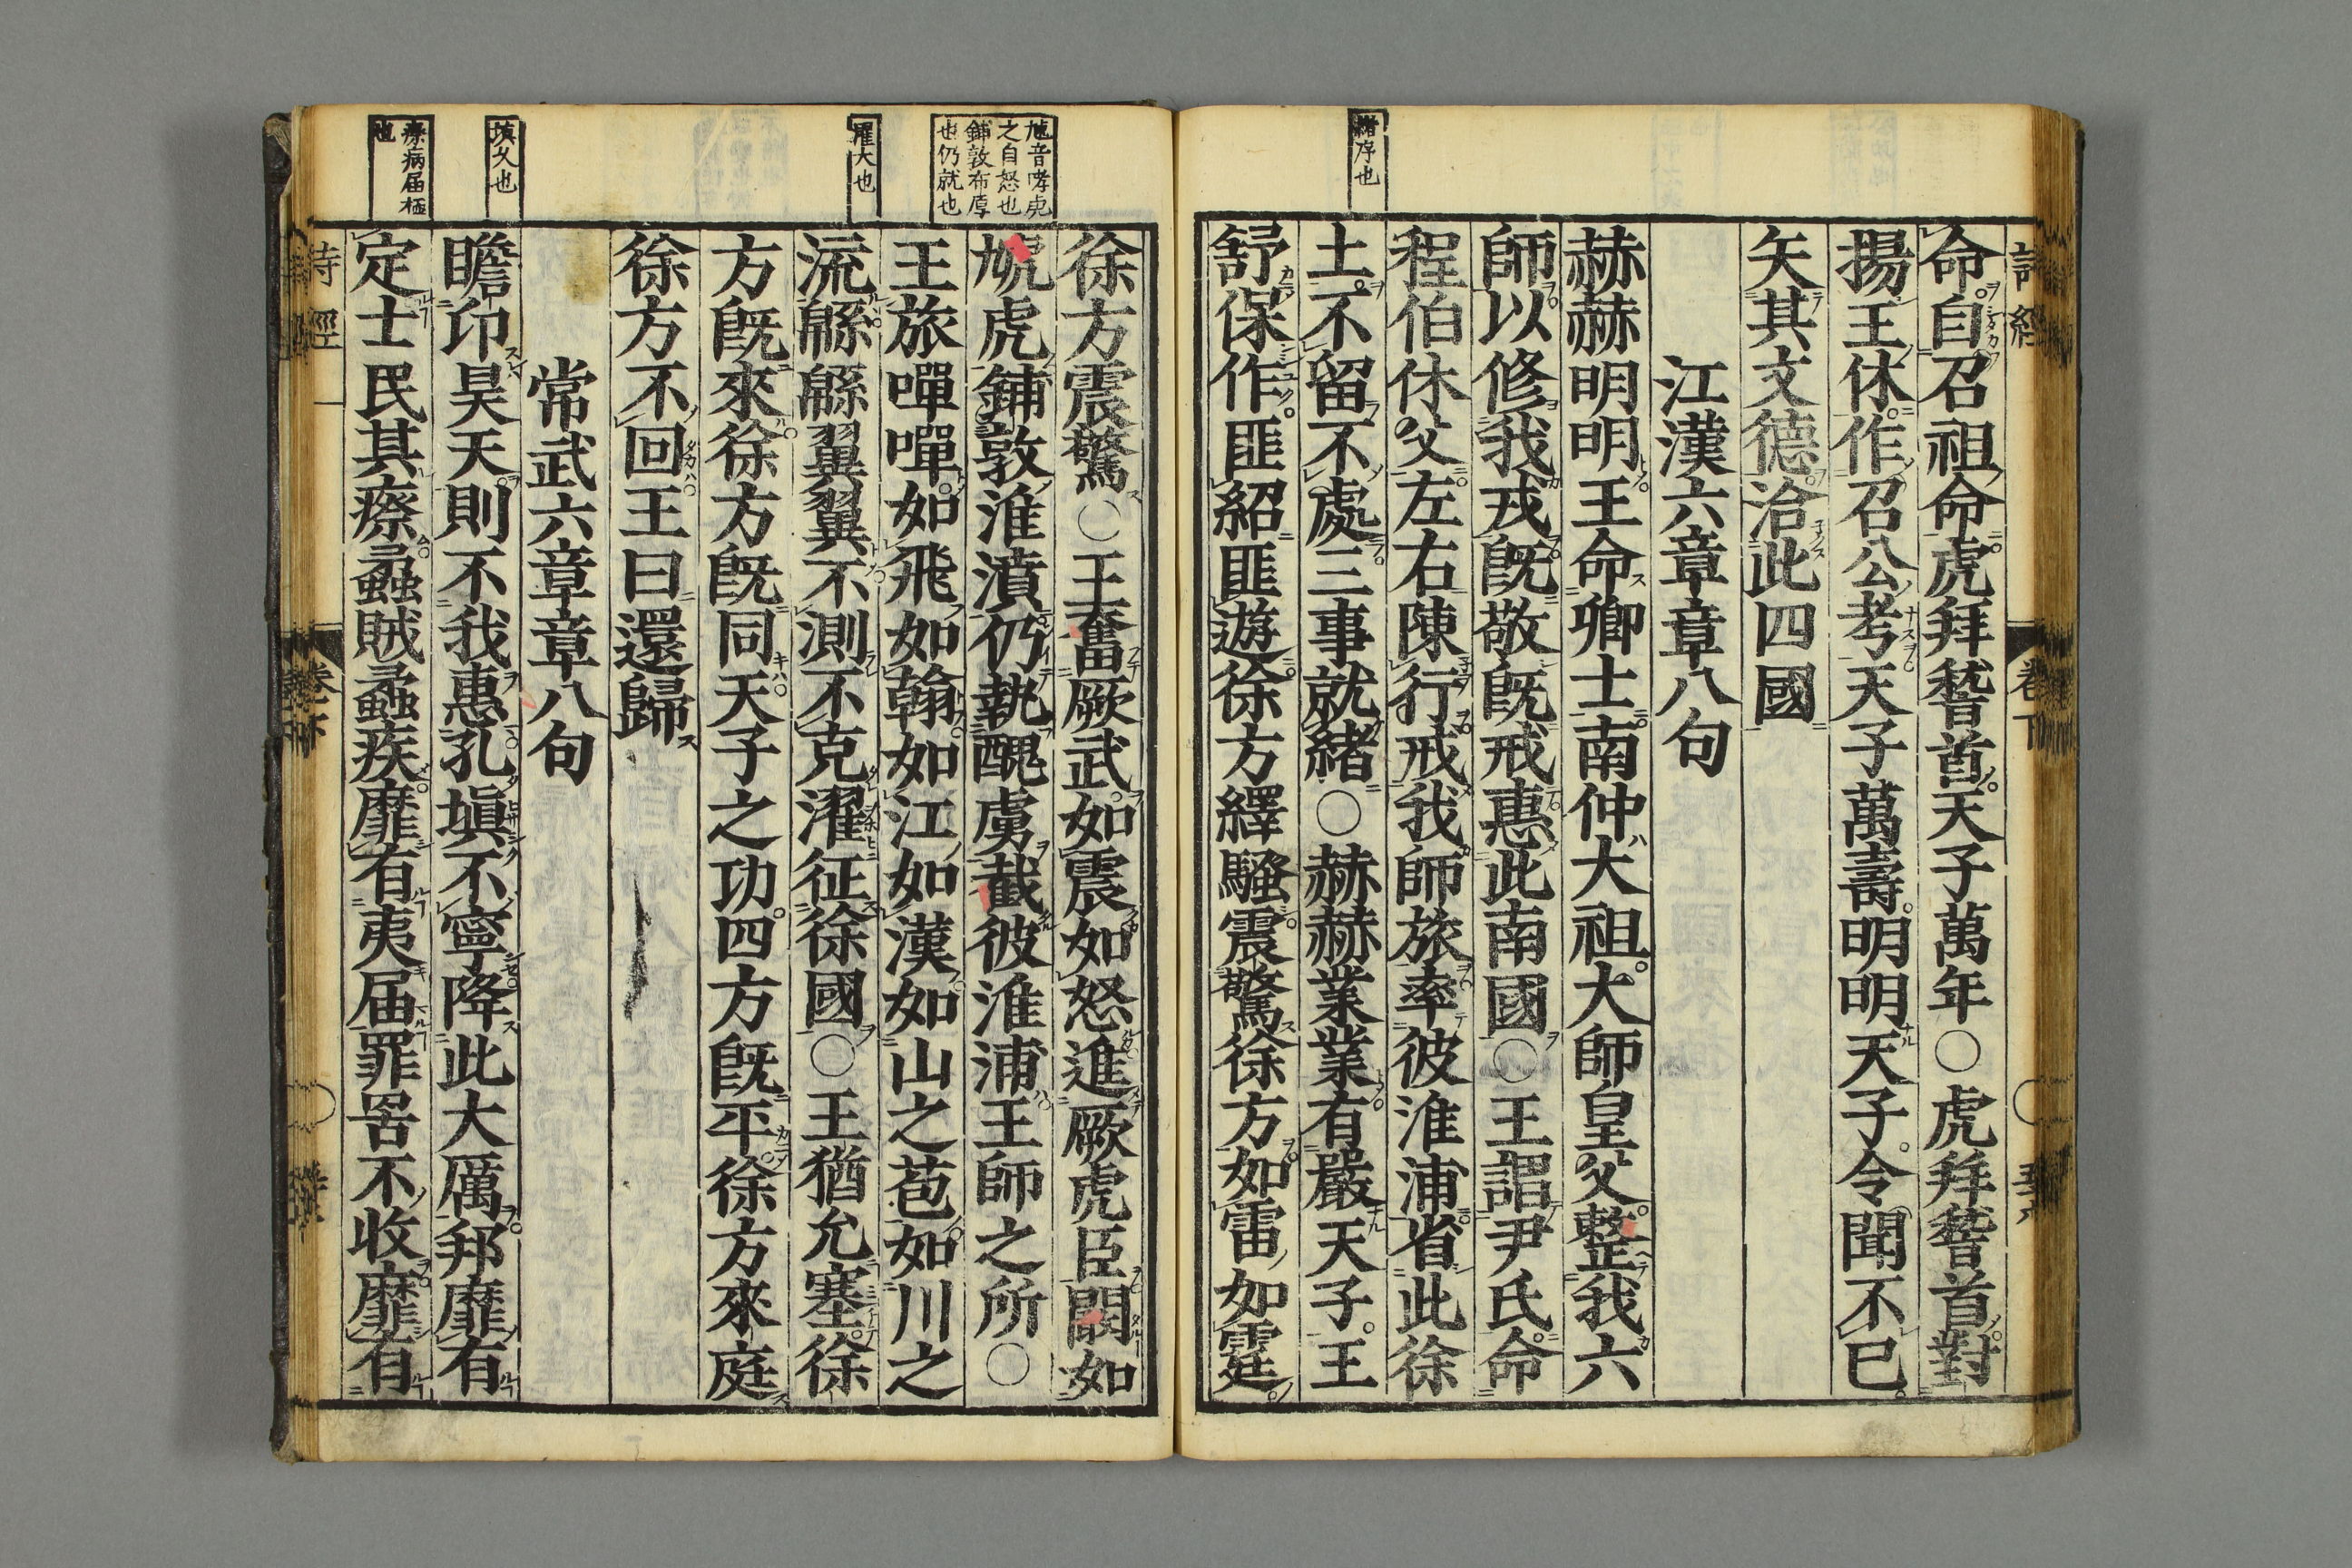 緒序也
命自召祖命虎拜稽首天子萬年○虎拜稽首對
揚王休作召公考天子萬壽明明天子令聞不已
矢其文德洽此四國
江漢六章章八句
赫赫明明王命卿士南仲大祖大師皇父整我六
師以修我戎既敬既戒惠此南國○王謂尹氏命
程伯休父左右陳行戒我師旅率彼淮浦省此徐
土不留不處三事就緒○赫赫業業有嚴天子王
舒保作匪紹匪遊徐方繹騷震驚徐方如雷如霆
虓音哮虎
之自怒也
鋪敦布厚
也仍就也
濯大也
塡久也
瘵病届極
也
徐方震驚○王奮厥武如震如怒進厥虎臣闞如
虓虎鋪敦淮濆仍執醜虜截彼淮浦王師之所○
王旅嘽嘽如飛如翰如江如漢如山之苞如川之
流緜緜翼翼不測不克濯征徐國○王猶允塞徐
方旣來徐方旣同天子之功四方旣平徐方來庭
徐方不回王曰還歸
常武六章章八句
瞻卬昊天則不我惠孔塡不寧降此大厲邦靡有
定士民其瘵蟊賊蟊疾靡有夷届罪罟不收靡有
詩經
卷下